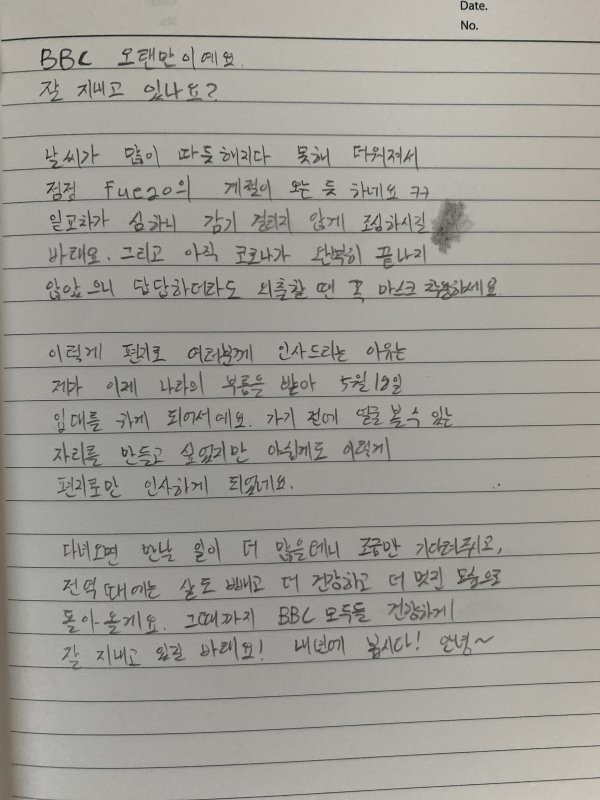 Date.
No.
BBC 오랜만이예요.
잘 지내고 있나요?
날씨가 많이 따듯해지다 못해 더워져서
점점 Fuego의 계절이 오는 듯 하네요 ㅋㅋ
일교차가 심하니 감기 걸리지 않게 조심하시길
바래요. 그리고 아직 코로나가 완벽히 끝나지
않았으니 답답하더라도 외출할 땐 꼭 마스크 착용하세요.
이렇게 편지로 여러분께 인사드리는 이유는
제가 이제 나라의 부름을 받아 5월 19일
입대를 하게 되어서예요. 가기 전에 얼굴 볼 수 있는
자리를 만들고 싶었지만 아쉽게도 이렇게
편지로만 인사하게 되었네요.
다녀오면 만날 일이 더 많을테니 조금만 기다려주시고,
전역 때에는 살도 빼고 더 건강하고 더 멋진 모습으로
돌아올게요. 그때까지 BBC 모두들 건강하게
잘 지내고 있길 바래요! 내년에 봅시다! 안녕~